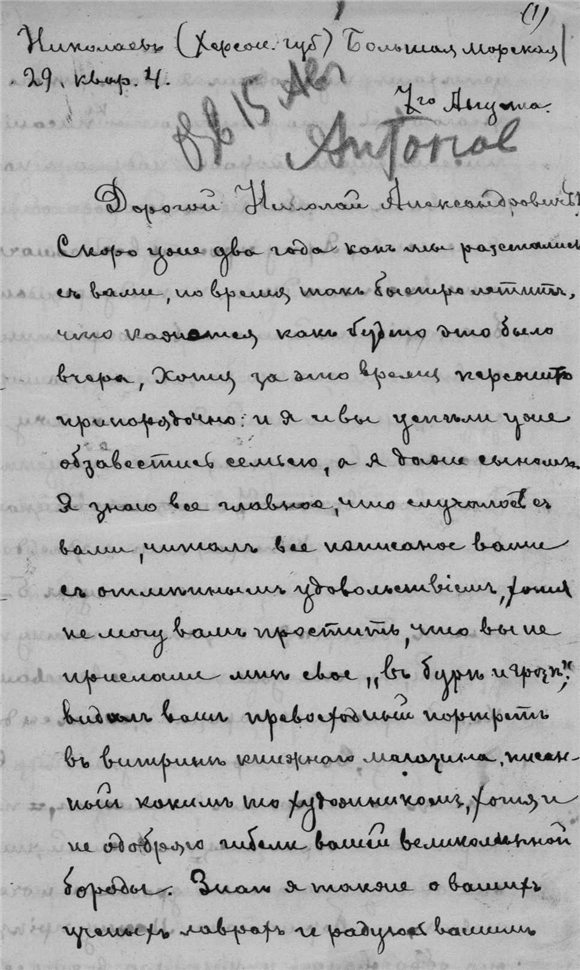 (1)
Николаевъ (Херсон. губ) Большая морская
29. кварт. 4.
15 Авг
7го Августа.
Антонов
Дорогой Николай Александровичъ!
Скоро уже два года какъ мы разстались
съ вами, но время такъ быстро летитъ,
что кажется какъ будто это было
вчера, Хотя за это время пережито
припорядочно: и я и вы успѣли уже
обзавестись семьею, а я даже сыномъ.
Я знаю все главное, что случалось съ
вами, читалъ все написаное вами
съ отличнымъ удовольствіемъ, хотя
не могу вамъ простить, что вы не
прислали мнѣ свое „въ бурѣ и грозѣ“,
видалъ вашъ превосходный портретъ
въ витринѣ книжнаго магазина, писан-
ный какимъ то художникомъ, хотя и
не одобряю гибели вашей великолѣпной
бороды. Знаю я также о вашихъ
ученыхъ лаврахъ и радуюсь вашимъ